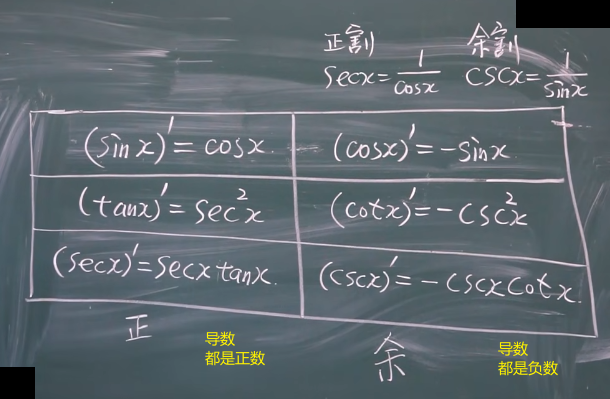 正割 余割
secx=1/cosx cscx=1/sinx
(sinx)'=cosx. (cosx)'=-sinx.
(tanx)'=sec²x (cotx)'=-csc²x
(secx)'=secxtanx. (cscx)'=-cscxcotx.
正
导数
都是正数
余
导数
都是负数